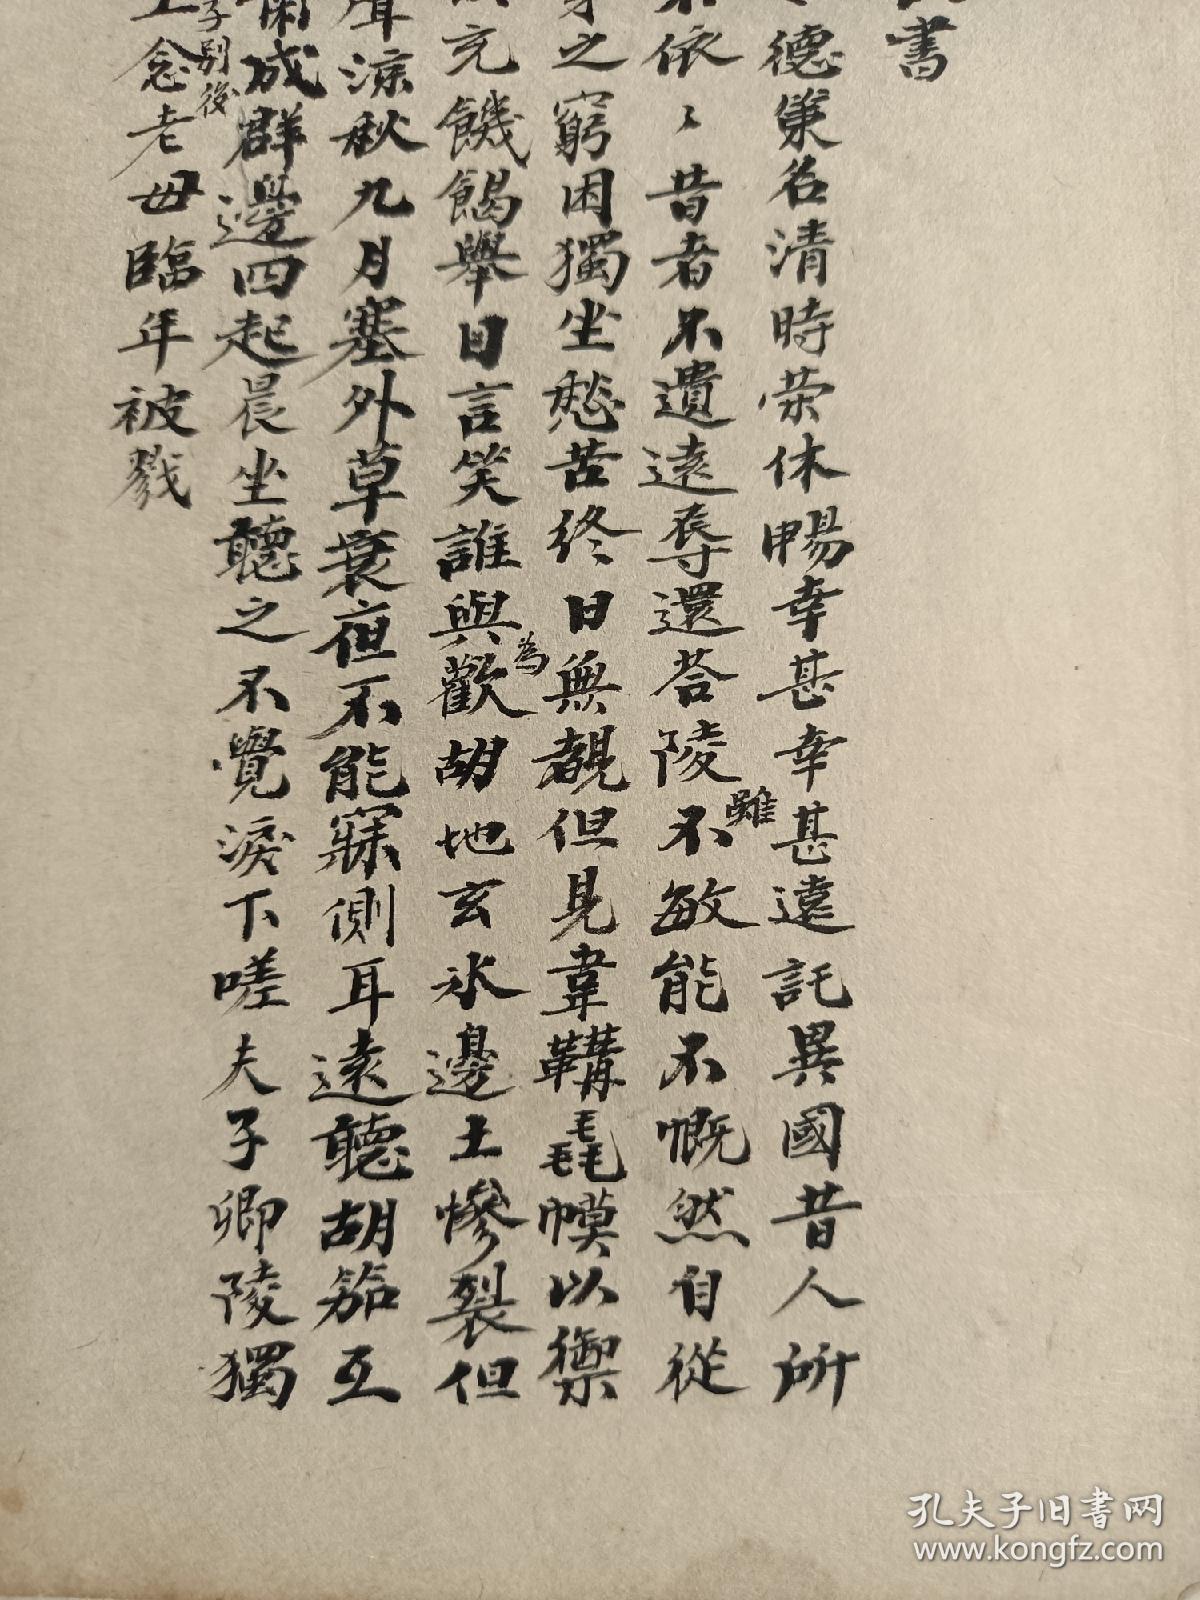 書
德策名清時荣休暢幸甚幸甚遠託異國昔人所
依〻昔者不遺遠辱還荅陵雖不敏能不慨然自從
之窮困獨坐愁苦終日無覩但見韋韝毳幙以禦
充饑餲舉目言笑誰與為歡胡地玄氷邊土慘裂但
聲涼秋九月塞外草衰夜不能寐側耳遠聽胡笳互
嘯成群邊四起晨坐聽之不覺淚下嗟夫子卿陵獨
子別後
上念老母臨年被戮
孔夫子旧书网
www.kongfz.com